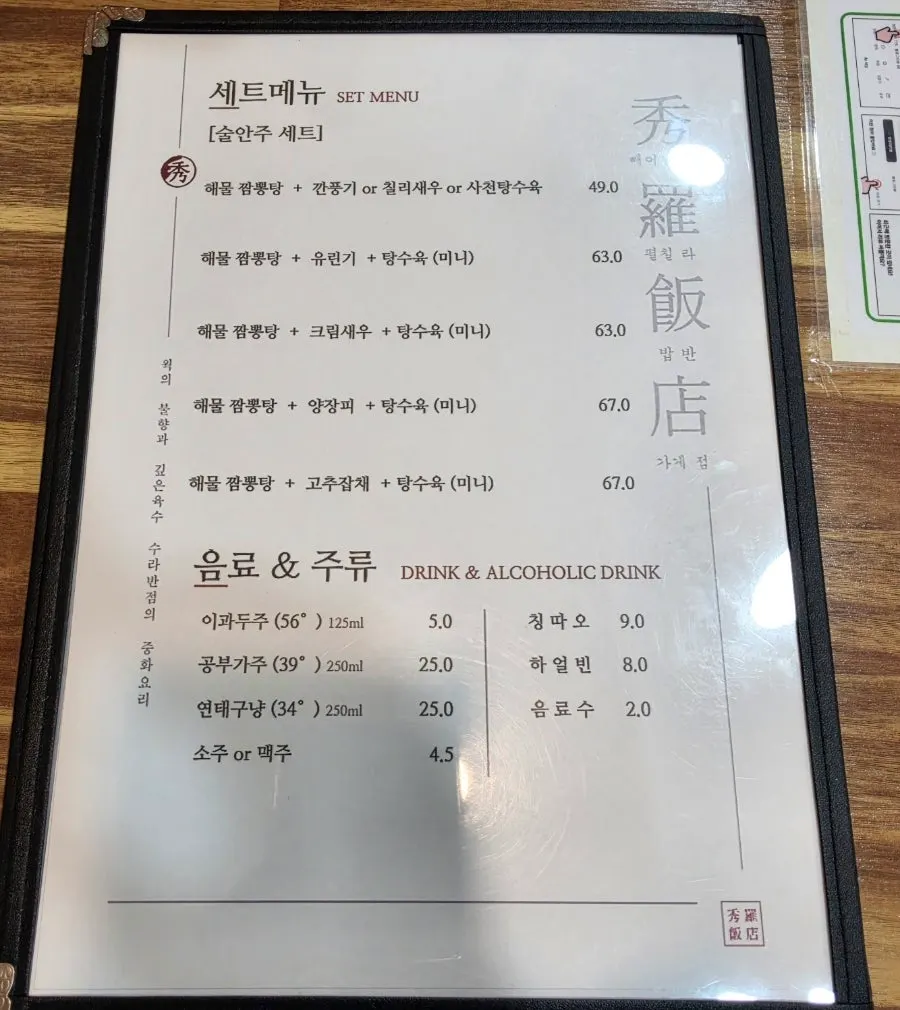 세트메뉴 SET MENU
[술안주 세트]
해물 짬뽕탕 + 깐풍기 or 칠리새우 or 사천탕수육 49.0
해물 짬뽕탕 + 유린기 + 탕수육 (미니) 63.0
해물 짬뽕탕 + 크림새우 + 탕수육 (미니) 63.0
해물 짬뽕탕 + 양장피 + 탕수육 (미니) 67.0
해물 짬뽕탕 + 고추잡채 + 탕수육 (미니) 67.0
음료 & 주류 DRINK & ALCOHOLIC DRINK
이과두주 (56°) 125ml 5.0
공부가주 (39°) 250ml 25.0
연태구냥 (34°) 250ml 25.0
소주 or 맥주 4.5
칭따오 9.0
하얼빈 8.0
음료수 2.0
秀
웍의 불향과 깊은육수 수라반점의 중화요리
秀
빼어
羅
펼칠 라
飯
밥 반
店
가게 점
秀羅
飯店